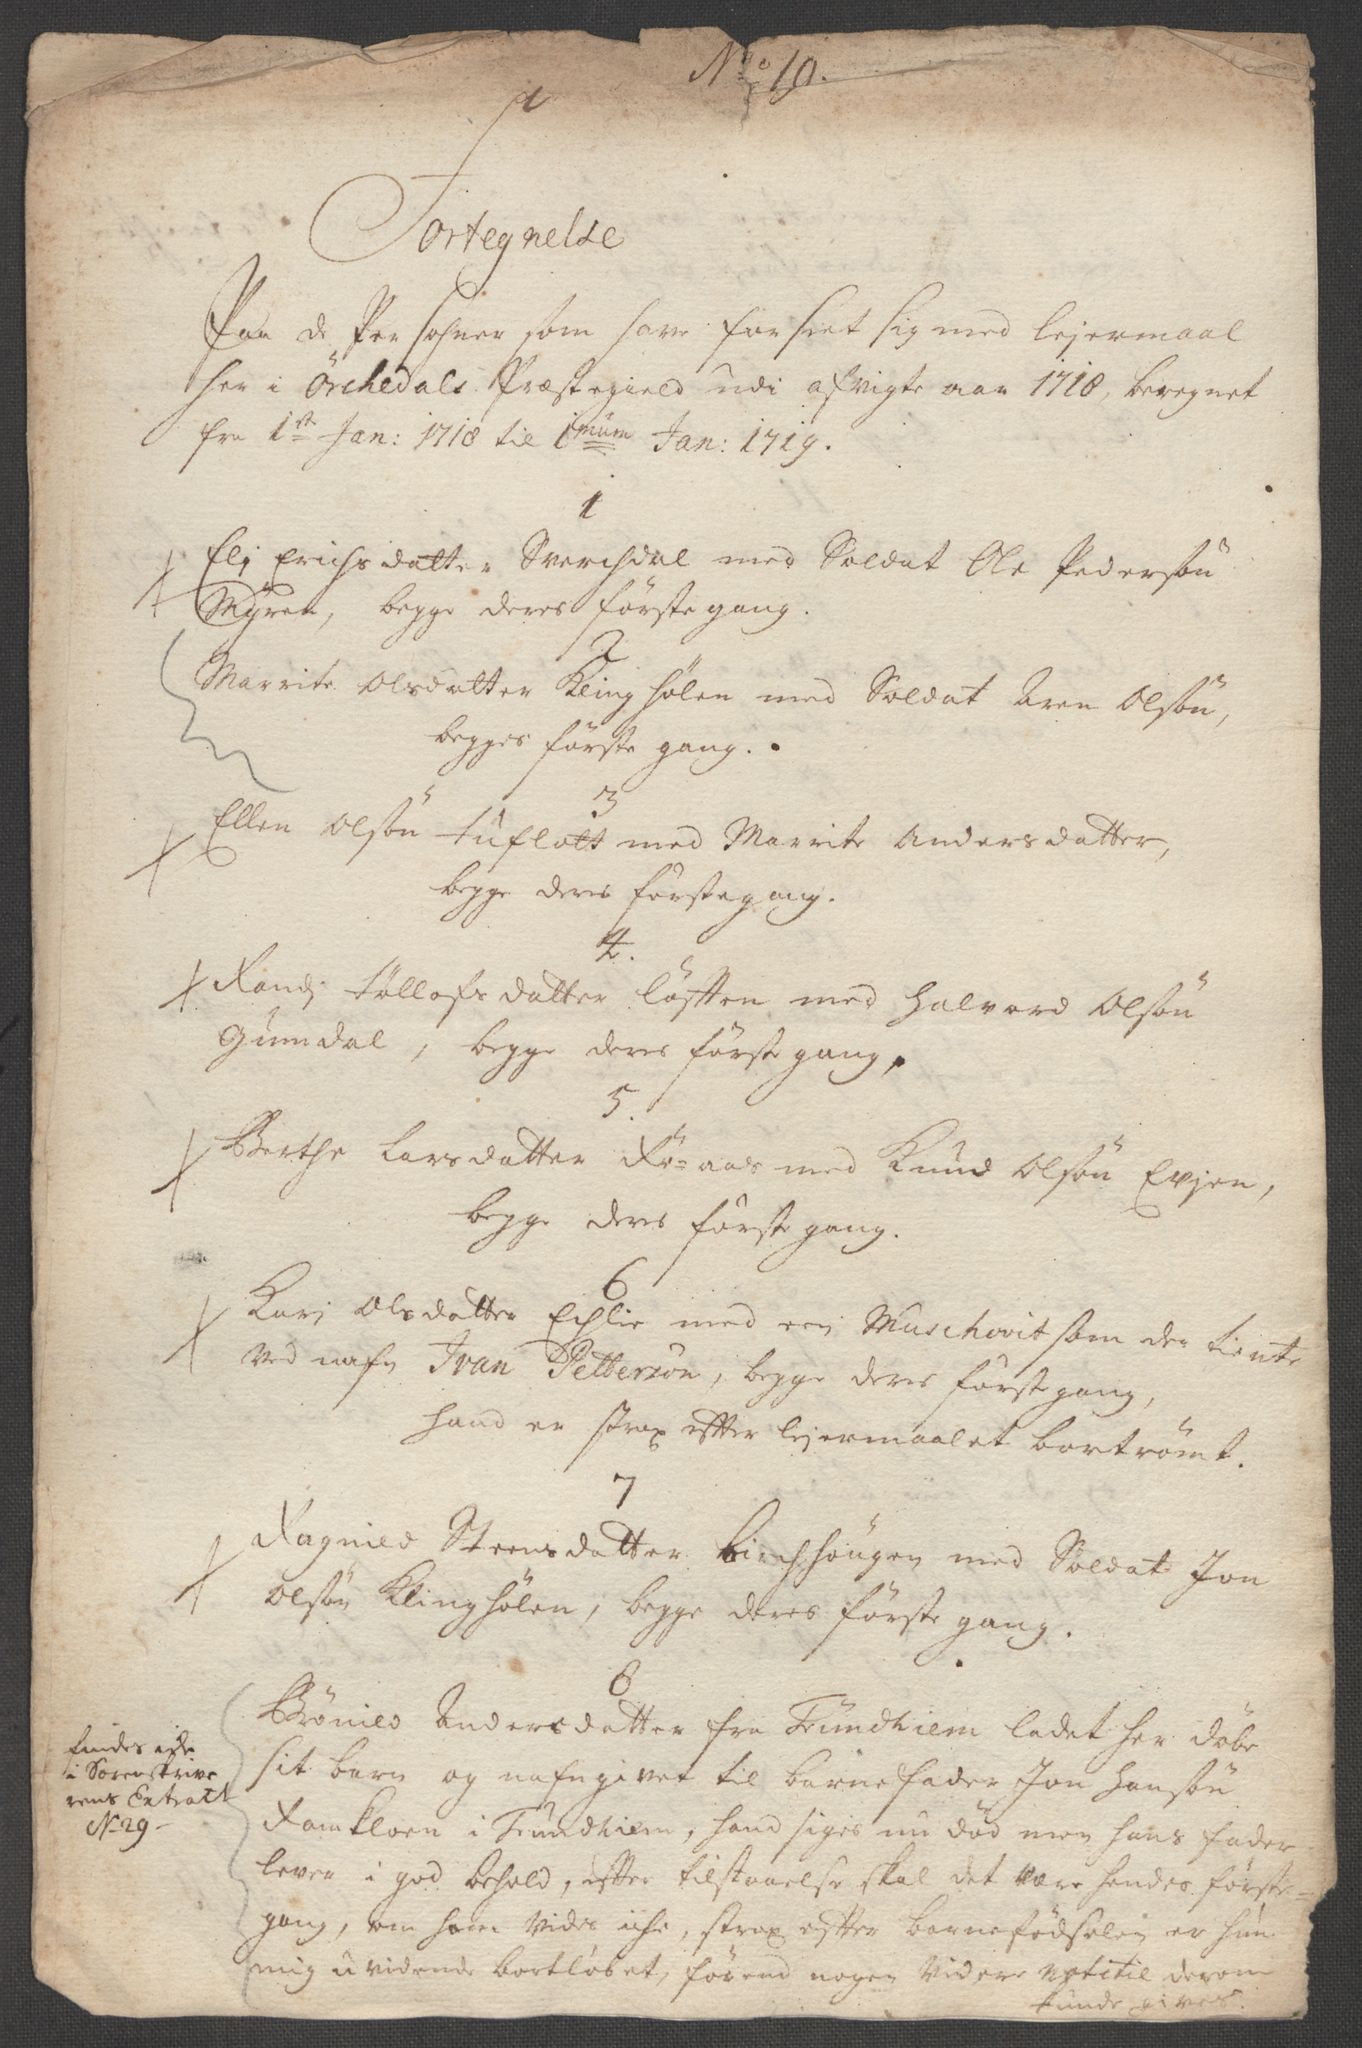 No 10.
Fortegnelse
Paa de Persohner som have forseet sig med lejermaal
her i Örchedals Præstegield udi afvigte aar 1718, beregnet
fra 1ste Jan: 1718 til 1mum Jan: 1719.
1
Elj Erichsdatter Sverchdal med Soldat Ole Pedersøn
Myren, begge deres første gang.
2
Marrite Olsdatter Klinghølen med Soldat Aren Olsøn,
begges første gang.
3
Ellen Olsøn Tuflatt med Marrite Andersdatter,
begge deres første gang.
4.
Randj Tøllofsdatter Løften med Halvord Olsøn
Gumdal, begge deres første gang,
5.
Berthe Larsdatter Rø=aas med Knud Olsøn Evjen,
begge deres første gang.
6
Karj Olsdatter Echlie med een Muschovit som der tiente
ved nafn Ivan Petterzøn, begge deres første gang,
hand er strax efter lejermaalet bortrømt.
7
Ragnild Steensdatter Birchhougen med Soldat Jon
Olsøn Klinghølen, begge deres første gang.
8
Brønild Andersdatter fra Trundhiem ladet her døbe
sit barn og nafngivet til barnefader Jon Hansøn
Ramkloen i Trundhiem, hand siges nu død men hans fader
lever i god behold, efter tilstaaelse skal det være hendes første
gang, om ham vides iche, strax efter barnefødselen er hun
mig uvidende bortløbet, førend nogen videre notitie derom
kunde gives.
findes iche
i Sorenskrive
rens Extract
No 29-